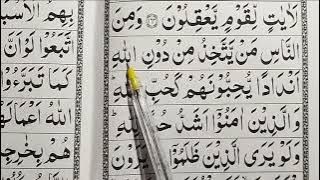 لَاٰيٰتٍ لِّقَوْمٍ يَّعْقِلُوْنَ ۝۱۶۴ وَمِنَ
النَّاسِ مَنْ يَّتَّخِذُ مِنْ دُوْنِ اللّٰهِ
اَنْدَادًا يُّحِبُّوْنَهُمْ كَحُبِّ اللّٰهِ
وَالَّذِيْنَ اٰمَنُوْٓا اَشَدُّ
وَلَوْ يَرَى الَّذِيْنَ ظَلَمُوْٓا يَرَوْنَ
بِهِمُ
اتَّبَعُوْا لَوْ اَنَّ
كَمَا تَبَرَّءُوْا
اللّٰهُ
هُمْ